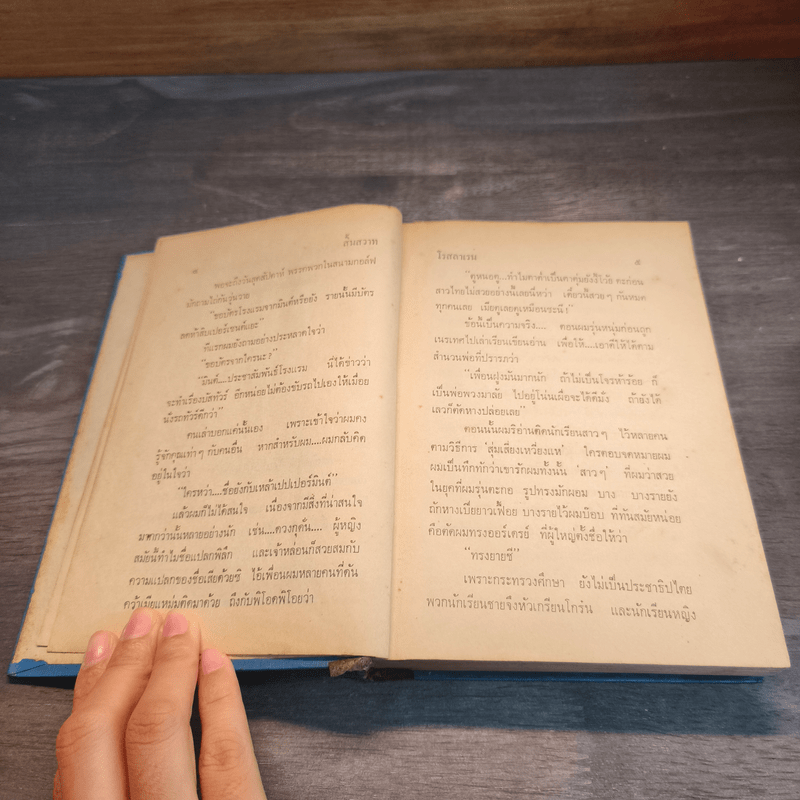 ๔ ลั่นสวาท
พอจะถึงวันสุดสัปดาห์ พรรคพวกในสนามกอล์ฟ
นักถามไถ่กันวุ่นวาย
"ขอบัตรโรงแรมจากมินต์หรือยัง รายนั้นมีบัตร
ลดห้าสิบเปอร์เซนต์แยะ"
ทีแรกผมยังถามอย่างประหลาดใจว่า
"ขอบัตรจากใครนะ?"
"มินต์....ประชาสัมพันธ์โรงแรม นี่ได้ข่าวว่า
จะทำเรื่องบัสทัวร์ อีกหน่อยไม่ต้องขับรถไปเองให้เมื่อย
นั่งรถทัวร์ดีกว่า"
คนเล่าบอกแค่นั้นเอง เพราะเข้าใจว่าผมคง
รู้จักคุณเท่า ๆ กับคนอื่น หากสำหรับผม....ผมกลับคิด
อยู่ในใจว่า
"ใครหว่า....ชื่อยังกับเหล้าเปปเปอร์มินต์"
แล้วผมก็ไม่ได้สนใจ เนื่องจากมีสิ่งที่น่าสนใจ
มากกว่านั้นหลายอย่างนัก เช่น....ดวงกุดั่น.... ผู้หญิง
สมัยนี้ทำไมชื่อแปลกพิลึก และเจ้าหล่อนก็สวยสมกับ
ความแปลกของชื่อเสียด้วยซิ ไอ้เพื่อนผมหลายคนที่ดัน
คว้าเมียแหม่มติดมาด้วย ถึงกับพิโอดพิโอยว่า
โรสลาเรน ๕
"ดูหนอดู...ทำไมตาต่ำเป็นตาตุ่มยังงี้โว้ย กะก่อน
สาวไทยไม่สวยอย่างนี้เลยนี่หว่า เดี๋ยวนี้สวย ๆ กันหมด
ทุกคนเลย เมียดูเลยดูเหมือนชะนี!"
ข้อนี้เป็นความจริง.... ตอนผมรุ่นหนุ่มก่อนถูก
เนรเทศไปเล่าเรียนเขียนอ่าน เพื่อให้....เอาดีให้ได้ตาม
สำนวนพ่อที่ปรารภว่า
"เพื่อนฝูงมันมากนัก ถ้าไม่เป็นโจรห้าร้อย ก็
เป็นพ่อพวงมาลัย ไปอยู่โน่นเผื่อจะได้ดีมั่ง ถ้ายังได้
เลวก็ตัดหางปล่อยเลย"
ตอนนั้นผมริอ่านติดนักเรียนสาว ๆ ไว้หลายคน
ตามวิธีการ 'สุ่มเสี่ยงเหวี่ยงแห' ใครตอบจดหมายผม
ผมเป็นทึกทักว่าเขารักผมทั้งนั้น 'สาว ๆ' ที่ผมว่าสวย
ในยุคที่ผมรุ่นตะกอ รูปทรงมักผอม บาง บางรายยัง
ถักหางเปียยาวเฟื้อย บางรายไว้ผมบ๊อบ ที่ทันสมัยหน่อย
คือดัดผมทรงออร์เดรย์ ที่ผู้ใหญ่ตั้งชื่อให้ว่า
"ทรงยายชี"
เพราะกระทรวงศึกษา ยังไม่เป็นประชาธิปไตย
พวกนักเรียนชายจึงหัวเกรียนโกร๋น และนักเรียนหญิง